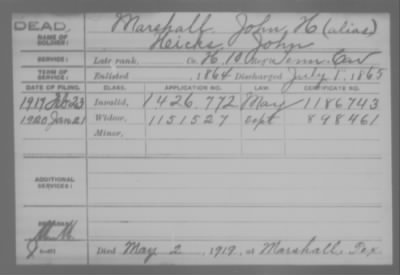 DEAD. Marshall, John H (alias)
NAME OF SOLDIER: Hicks, John
SERVICE: Late rank, Co. H, 10 Reg't Tenn. Cav
TERM OF SERVICE: Enlisted , 1864 Discharged July 1, 1865
DATE OF FILING. CLASS. APPLICATION NO. LAW. CERTIFICATE NO.
1919 Feb 23 Invalid, 1426,772 May 1186743
1920 Jan 21 Widow, 1151527 Sept 898461
Minor,
ADDITIONAL SERVICES:
Died May 2, 1919, at Marshall, Tex.